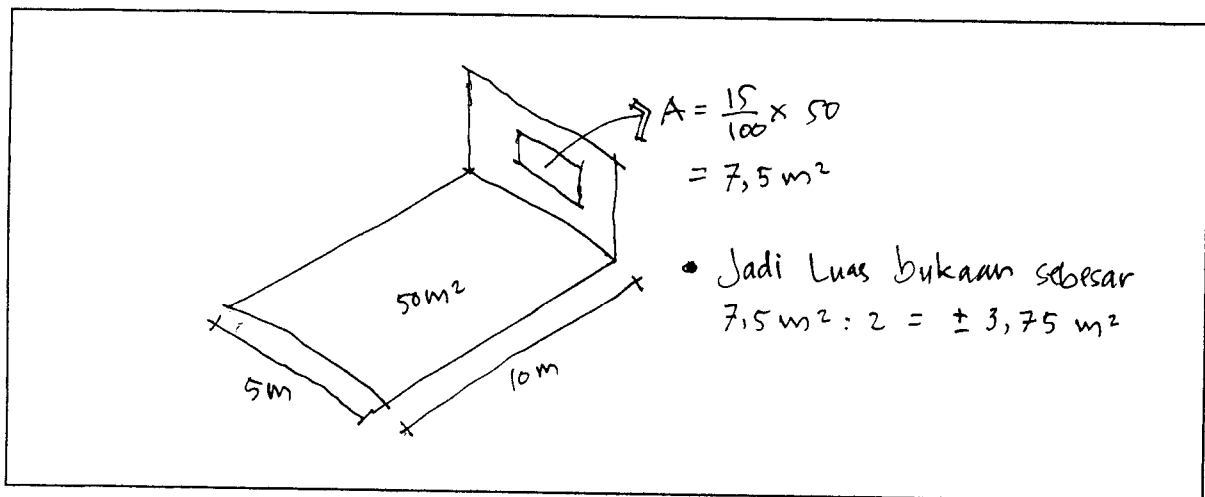 A = 15/100 × 50
= 7,5 m²
• Jadi Luas bukaan sebesar
7,5 m² : 2 = ± 3,75 m²
50 m²
5 m
10 m